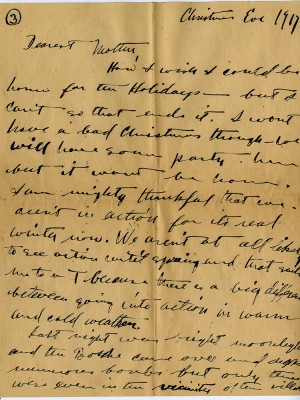 3
Christmas Eve 1917
Dearest Mother,
How I wish I could be
home for the Holidays – but I
can't so that ends it. I won't
have a bad Christmas though – we
will have some party – here
but it wont be home.
I am mighty thankful that we
aren't in action for its real
winter now. We aren't at all likely
to see action until spring and that suits
me to a T because there is a big difference
between going into action in warm
and cold weather.
Last night was bright moonlight
and the Bosche came over and dropped
numerous bombs but only three
were even in the vicinity of the village